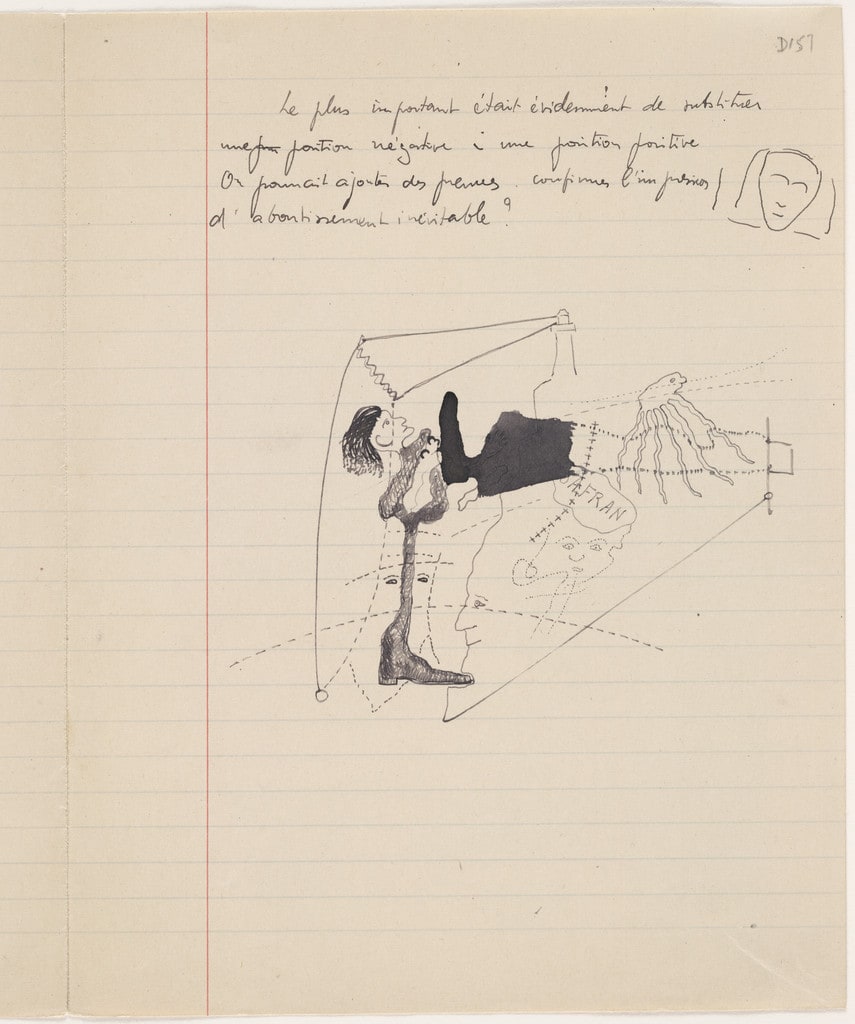 D151
Le plus important était évidemment de substituer
une position négative à une position positive
On pourrait ajouter des preuves. confirmer l'impression
d'aboutissement inévitable ?
SAFRAN